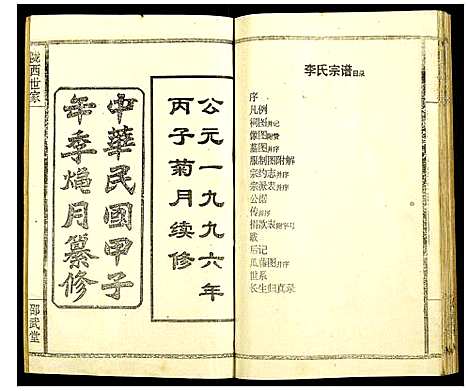 李氏宗谱目录
序
凡例
祠图并记
像图附赞
墓图并序
服制图附解
宗约志并序
宗派表并序
公启
传并序
捐款表附字号
跋
后记
瓜藤图并序
世系
长生归真录
公元一九九六年
丙子菊月续修
中華民國甲子
年季月纂修
陇西世家
邵武堂